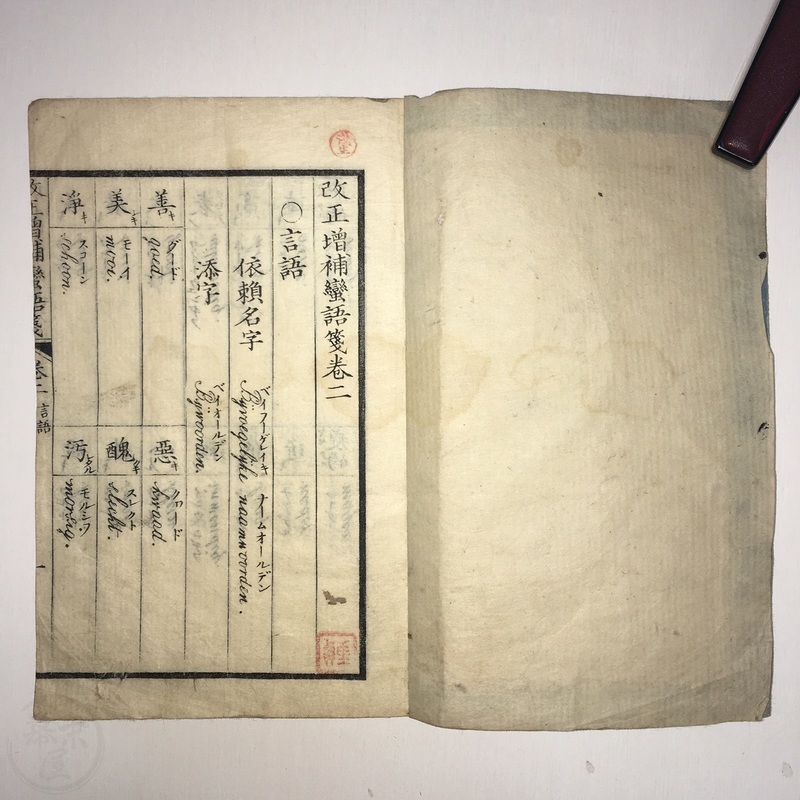 改正增補蠻語箋卷二
○言語
依賴名字
ベイフーゲレイキ ナームオールデン
Bijvoegelijke naamwoorden.
添字
ベイオールデン
Bijwoorden.
善キ
グード
goed.
惡キ
クワード
kwaad.
美シキ
モーイ
mooi.
醜クキ
スレクト
slecht.
淨キ
スコーン
schoon.
汚レタル
モルシフ
morsig.
改正增補蠻語箋 卷二 言語 一